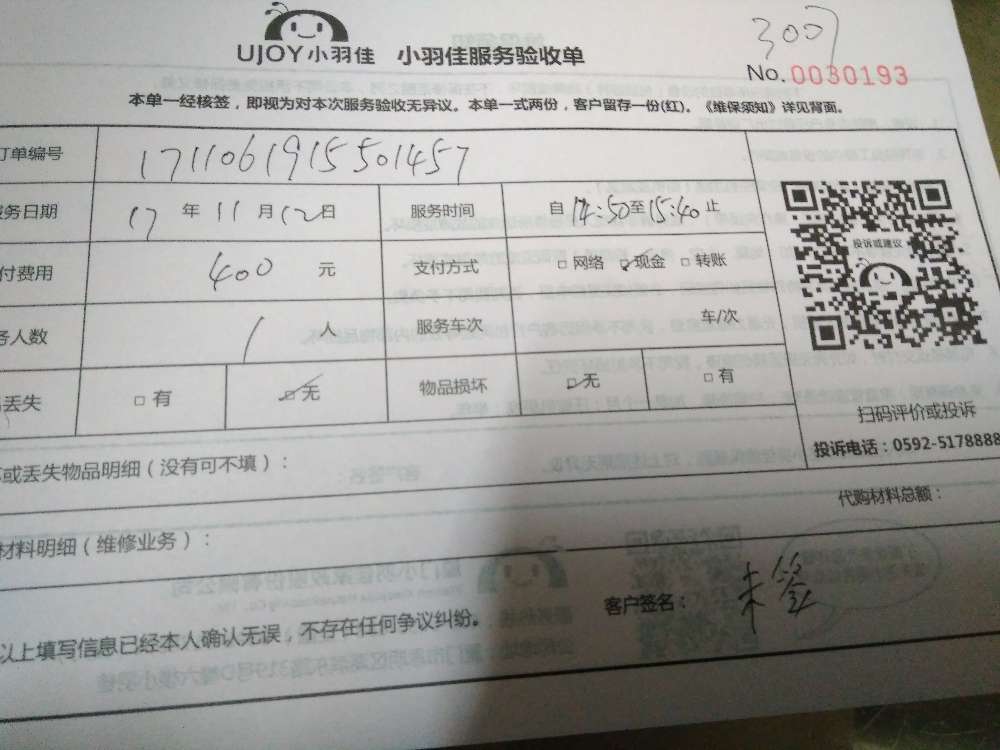 3007
UJOY小羽佳 小羽佳服务验收单
No.0030193
本单一经核签，即视为对本次服务验收无异议。本单一式两份，客户留存一份(红)。《维保须知》详见背面。
订单编号 1711061915501457
服务日期 17 年 11 月 12 日 服务时间 自 14:50 至 15:40 止
付费用 400 元 支付方式 □ 网络 ☑ 现金 □ 转账
务人数 1 人 服务车次 车/次
丢失 □ 有 ☑ 无 物品损坏 ☑ 无 □ 有
投诉或建议
扫码评价或投诉
投诉电话：0592-5178888
或丢失物品明细（没有可不填）：
代购材料总额：
材料明细（维修业务）：
客户签名： 未签
以上填写信息已经本人确认无误，不存在任何争议纠纷。